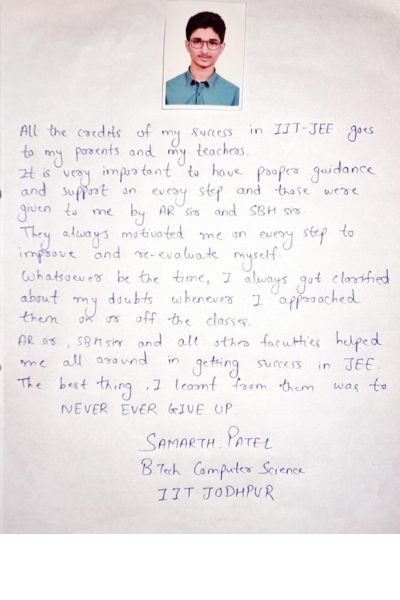 All the credits of my success in IIT-JEE goes
to my parents and my teachers.
It is very important to have proper guidance
and support on every step and those were
given to me by AR sir and SBH sir.
They always motivated me on every step to
improve and re-evaluate myself.
Whatsoever be the time, I always got clarified
about my doubts whenever I approached
them on or off the classes.
AR sir, SBH sir and all other faculties helped
me all around in getting success in JEE.
The best thing, I learnt from them was to
NEVER EVER GIVE UP.
SAMARTH. PATEL
B.Tech Computer Science
IIT JODHPUR